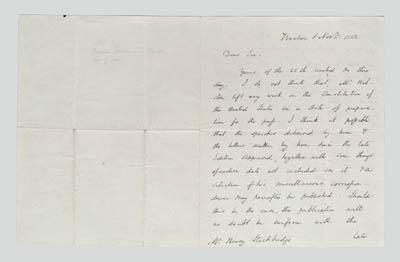 Boston 1 Nov. 1852.
Dear Sir.
Yours of the 25th reached me this
day. I do not think that Mr. Web-
ster left any work on the Constitution of
the United States in a state of prepara-
tion for the press. I think it possible
that the speeches delivered by him &
the letters written by him since the late
Edition appeared, together with some things
of earlier date not included in it & a
selection of his miscellaneous correspon-
dence may hereafter be published. Should
this be the case, the publication will
no doubt be uniform with the
late
Mr. Henry Stockbridge